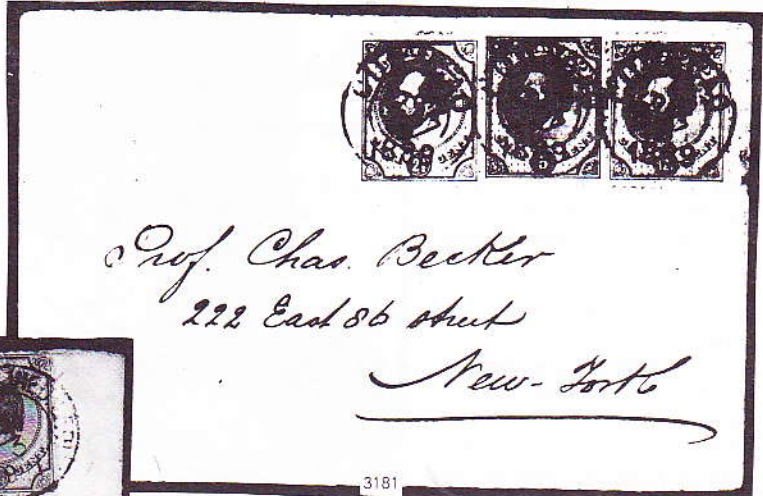 Prof. Chas. Becker
222 East 86 street
New-York
3181